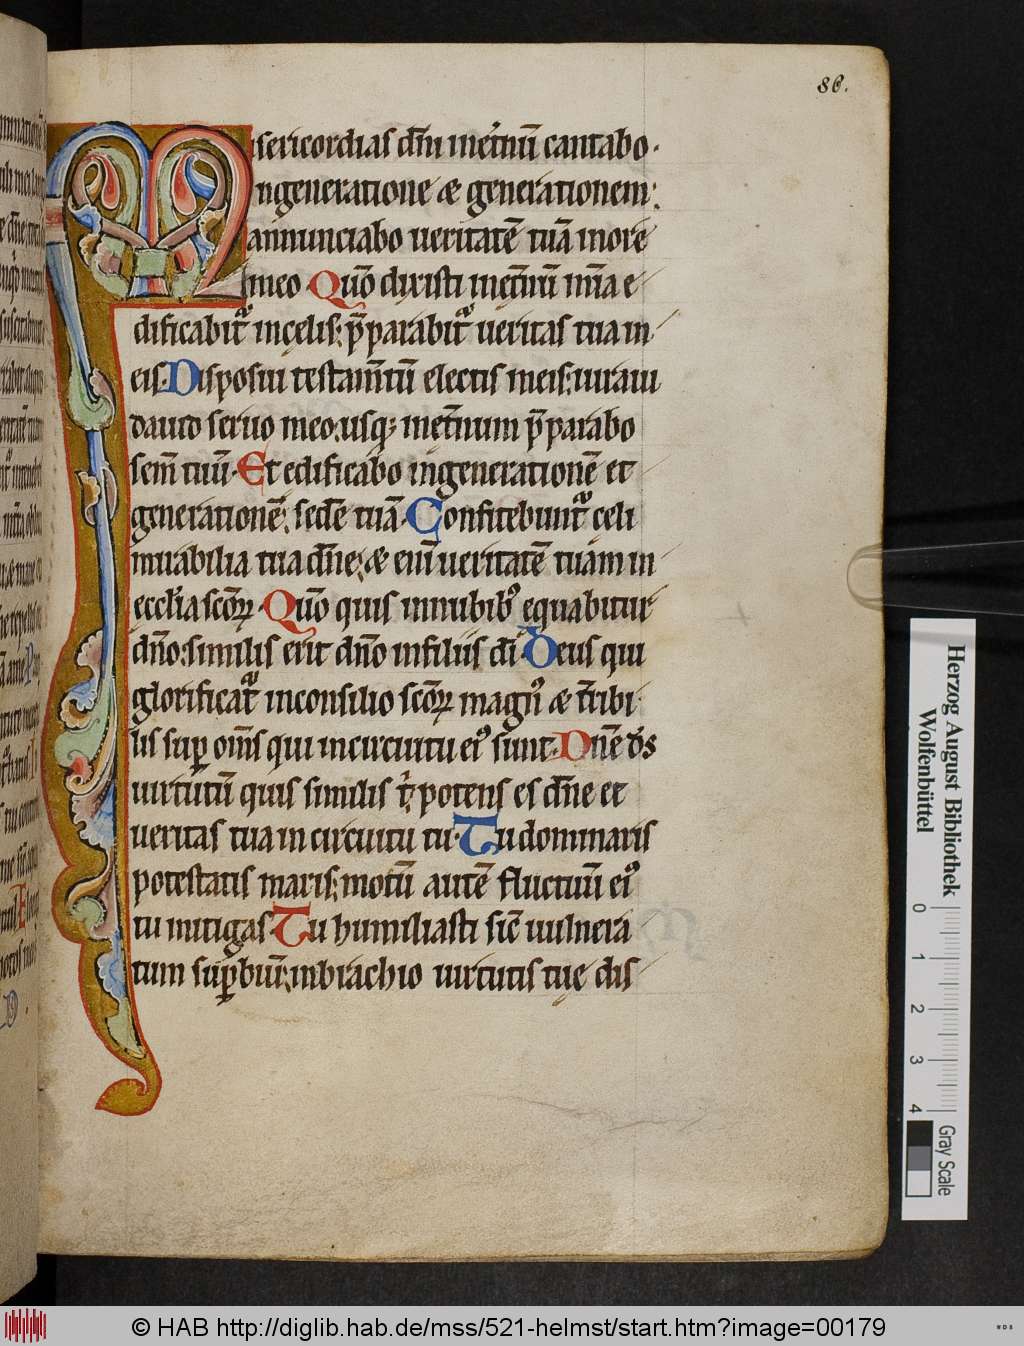 86.
Misericordias dñi inet̾nū cantabo.
Ingeneratione & generationem:
annunciabo ueritatē tuā inore
meo Quō dixisti inet̄nū mīa e-
dificabit᷑ incęlis: p̄parabit᷑ ueritas tua in-
eis. Disposui testam̄tū electis meis: iuraui
dauid seruo meo: usq; inet̄num p̄parabo
sem̄ tuū. Et edificabo ingenerationē et
generationē: sedē tuā. Confitebunt᷑ celi
mirabilia tua dñe: & eniī ueritatē tuam in
eccl̄ia sc̄oꝝ. Quō quis innubibꝰ equabitur
dño: similis erit dño infiliis di. Deus qui
glorificat᷑ inconsilio sc̄oꝝ magnꝰ & t̄ribi-
lis sup̱ om̄s qui incircuitu eiꝰ sunt. Dñe ds
uirtutū quis similis t̾: potens es dñe et
ueritas tua in circuitu tu. Tu dominaris
potestatis maris: motū autē fluctuū eiꝰ
tu mitigas. Tu humiliasti sic̄ uulnera
tum sup̱bū: inbrachio uirtutis tuę dis-
Herzog August Bibliothek
Wolfenbüttel
0 1 2 3 4
Gray Scale
© HAB http://diglib.hab.de/mss/521-helmst/start.htm?image=00179